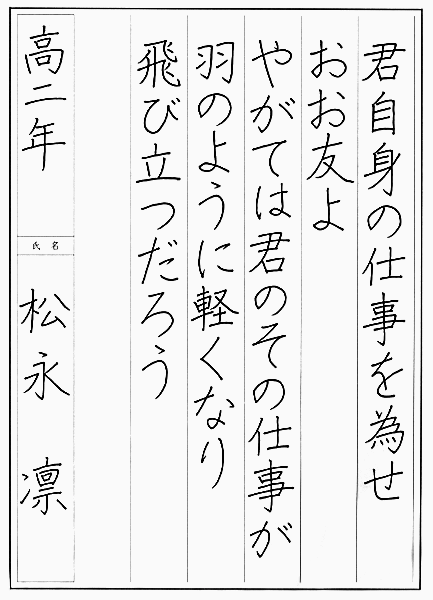 君自身の仕事を為せ
おお友よ
やがては君のその仕事が
羽のように軽くなり
飛び立つだろう
高二年
氏名
松永 凛